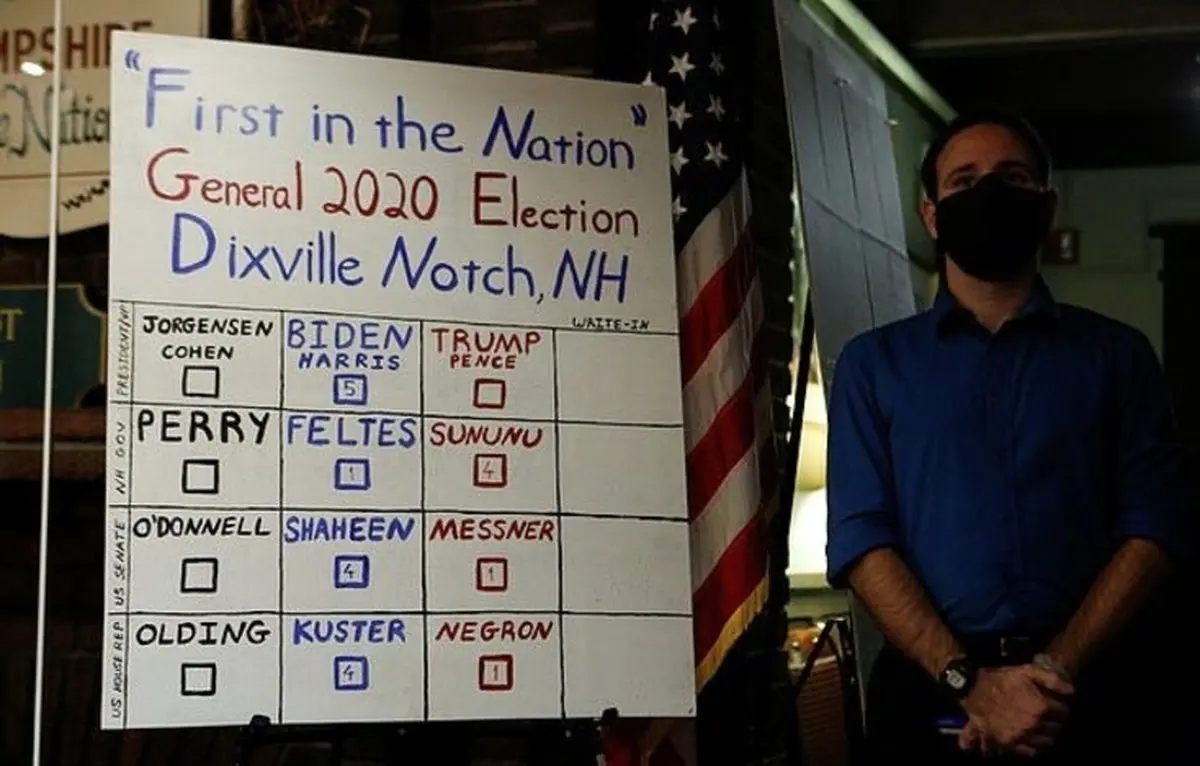 MPSHIRE
e Nation
"First in the Nation"
General 2020 Election
Dixville Notch, NH
WRITE-IN
PRESIDENT/VP
JORGENSEN
COHEN
BIDEN
HARRIS
5
TRUMP
PENCE
NH GOV
PERRY
FELTES
1
SUNUNU
4
US SENATE
O'DONNELL
SHAHEEN
4
MESSNER
1
US HOUSE REP
OLDING
KUSTER
4
NEGRON
1